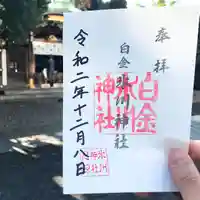 奉拝
白金氷川神社
令和二年十二月八日
白金
氷川
神社